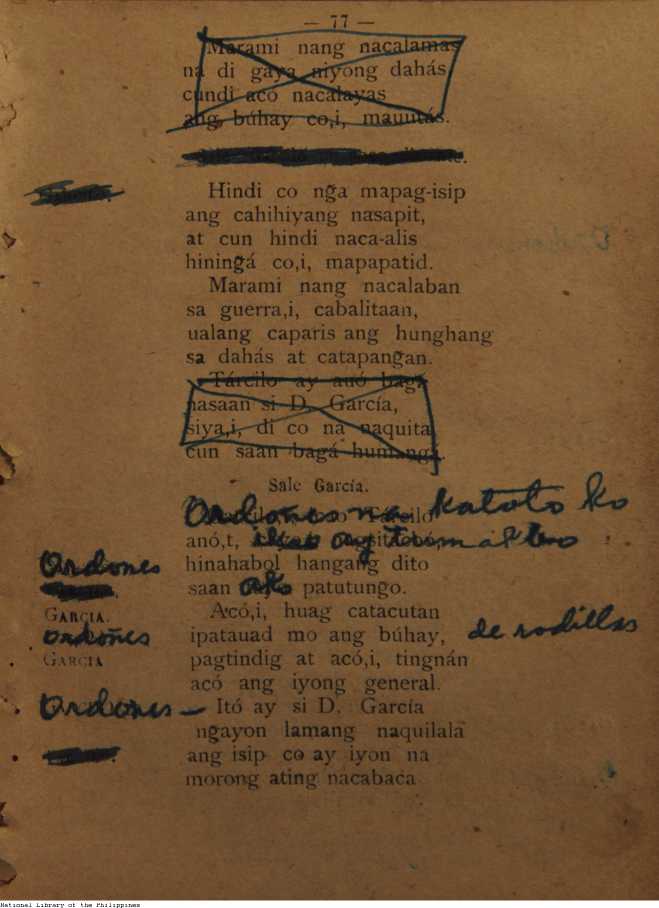 — 77 —
Marami nang nacalamas
na di gaya niyong dahás
cundi acó nacalayas
ang búhay co,i, mauutás.
Hindi co nğa mapag-isip
ang cahihiyang nasapit,
at cun hindi naca-alis
hiningá co,i, mapapatid.
Marami nang nacalaban
sa guerra,i, cabalitaan,
ualang caparis ang hunghang
sa dahás at catapangan.
Tárcilo ay auó bagá
nasaan si D. García,
siya,i, di co na naquita
cun saan bagá humangá.
Sale García.
Ordones na katoto ko
anó,t, ang
Ordones hinahabol hangang dito
saan ako patutungo.
GARCIA. Acó,i, huag catacutan
ordoñes ipatauad mo ang búhay, de rodillas
GARCIA pagtindig at acó,i, tingnán
acó ang iyong general.
Ordones — Itó ay si D. García
ngayon lamang naquilala
ang isip co ay iyon na
morong ating nacabaca
National Library of the Philippines